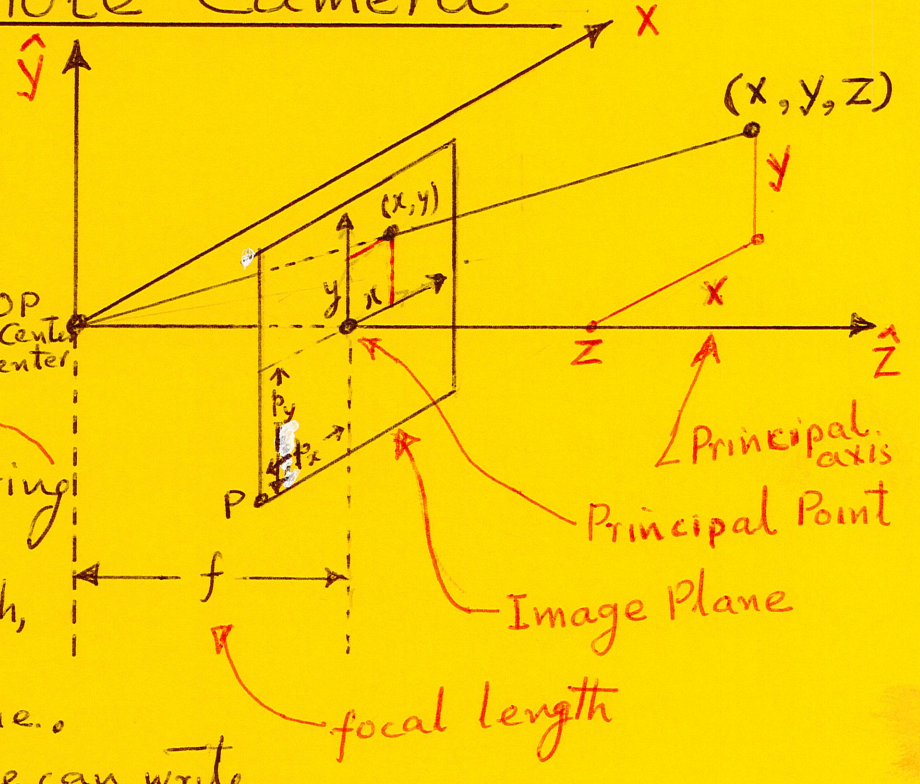 Camera
ŷ
X
(X, Y, Z)
Y
(x,y)
y
x
X
OP
Center
enter
Z
ẑ
Py
Px
Principal
axis
ring
P
Principal Point
f
Image Plane
h,
focal length
e..
e can write